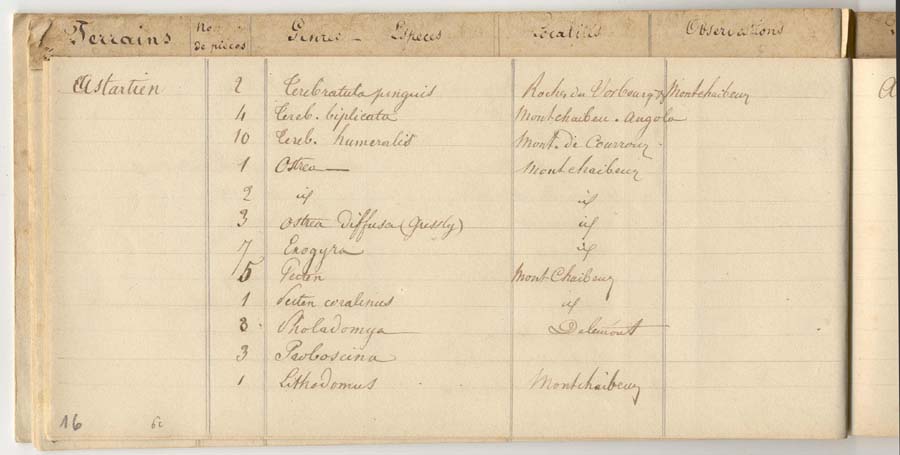 Terrains Nos de pièces Genres - Espèces Localités Observations
Astartien 2 Terebratula pinguis Roches du Vorbourg & Montchaibeux
4 Tereb. biplicata Montchaibeu. Angola
10 Tereb. humeralis Mont. de Courroux
1 Ostrea — Montchaibeux
2 id id
3 Ostrea diffusa (Gressly) id
7 Exogyra id
5 Pecten Mont-Chaibeux
1 Pecten coralinus id
3 Pholadomya Delémont
3 Proboscina
1 Lithodomus Montchaibeux
16
A